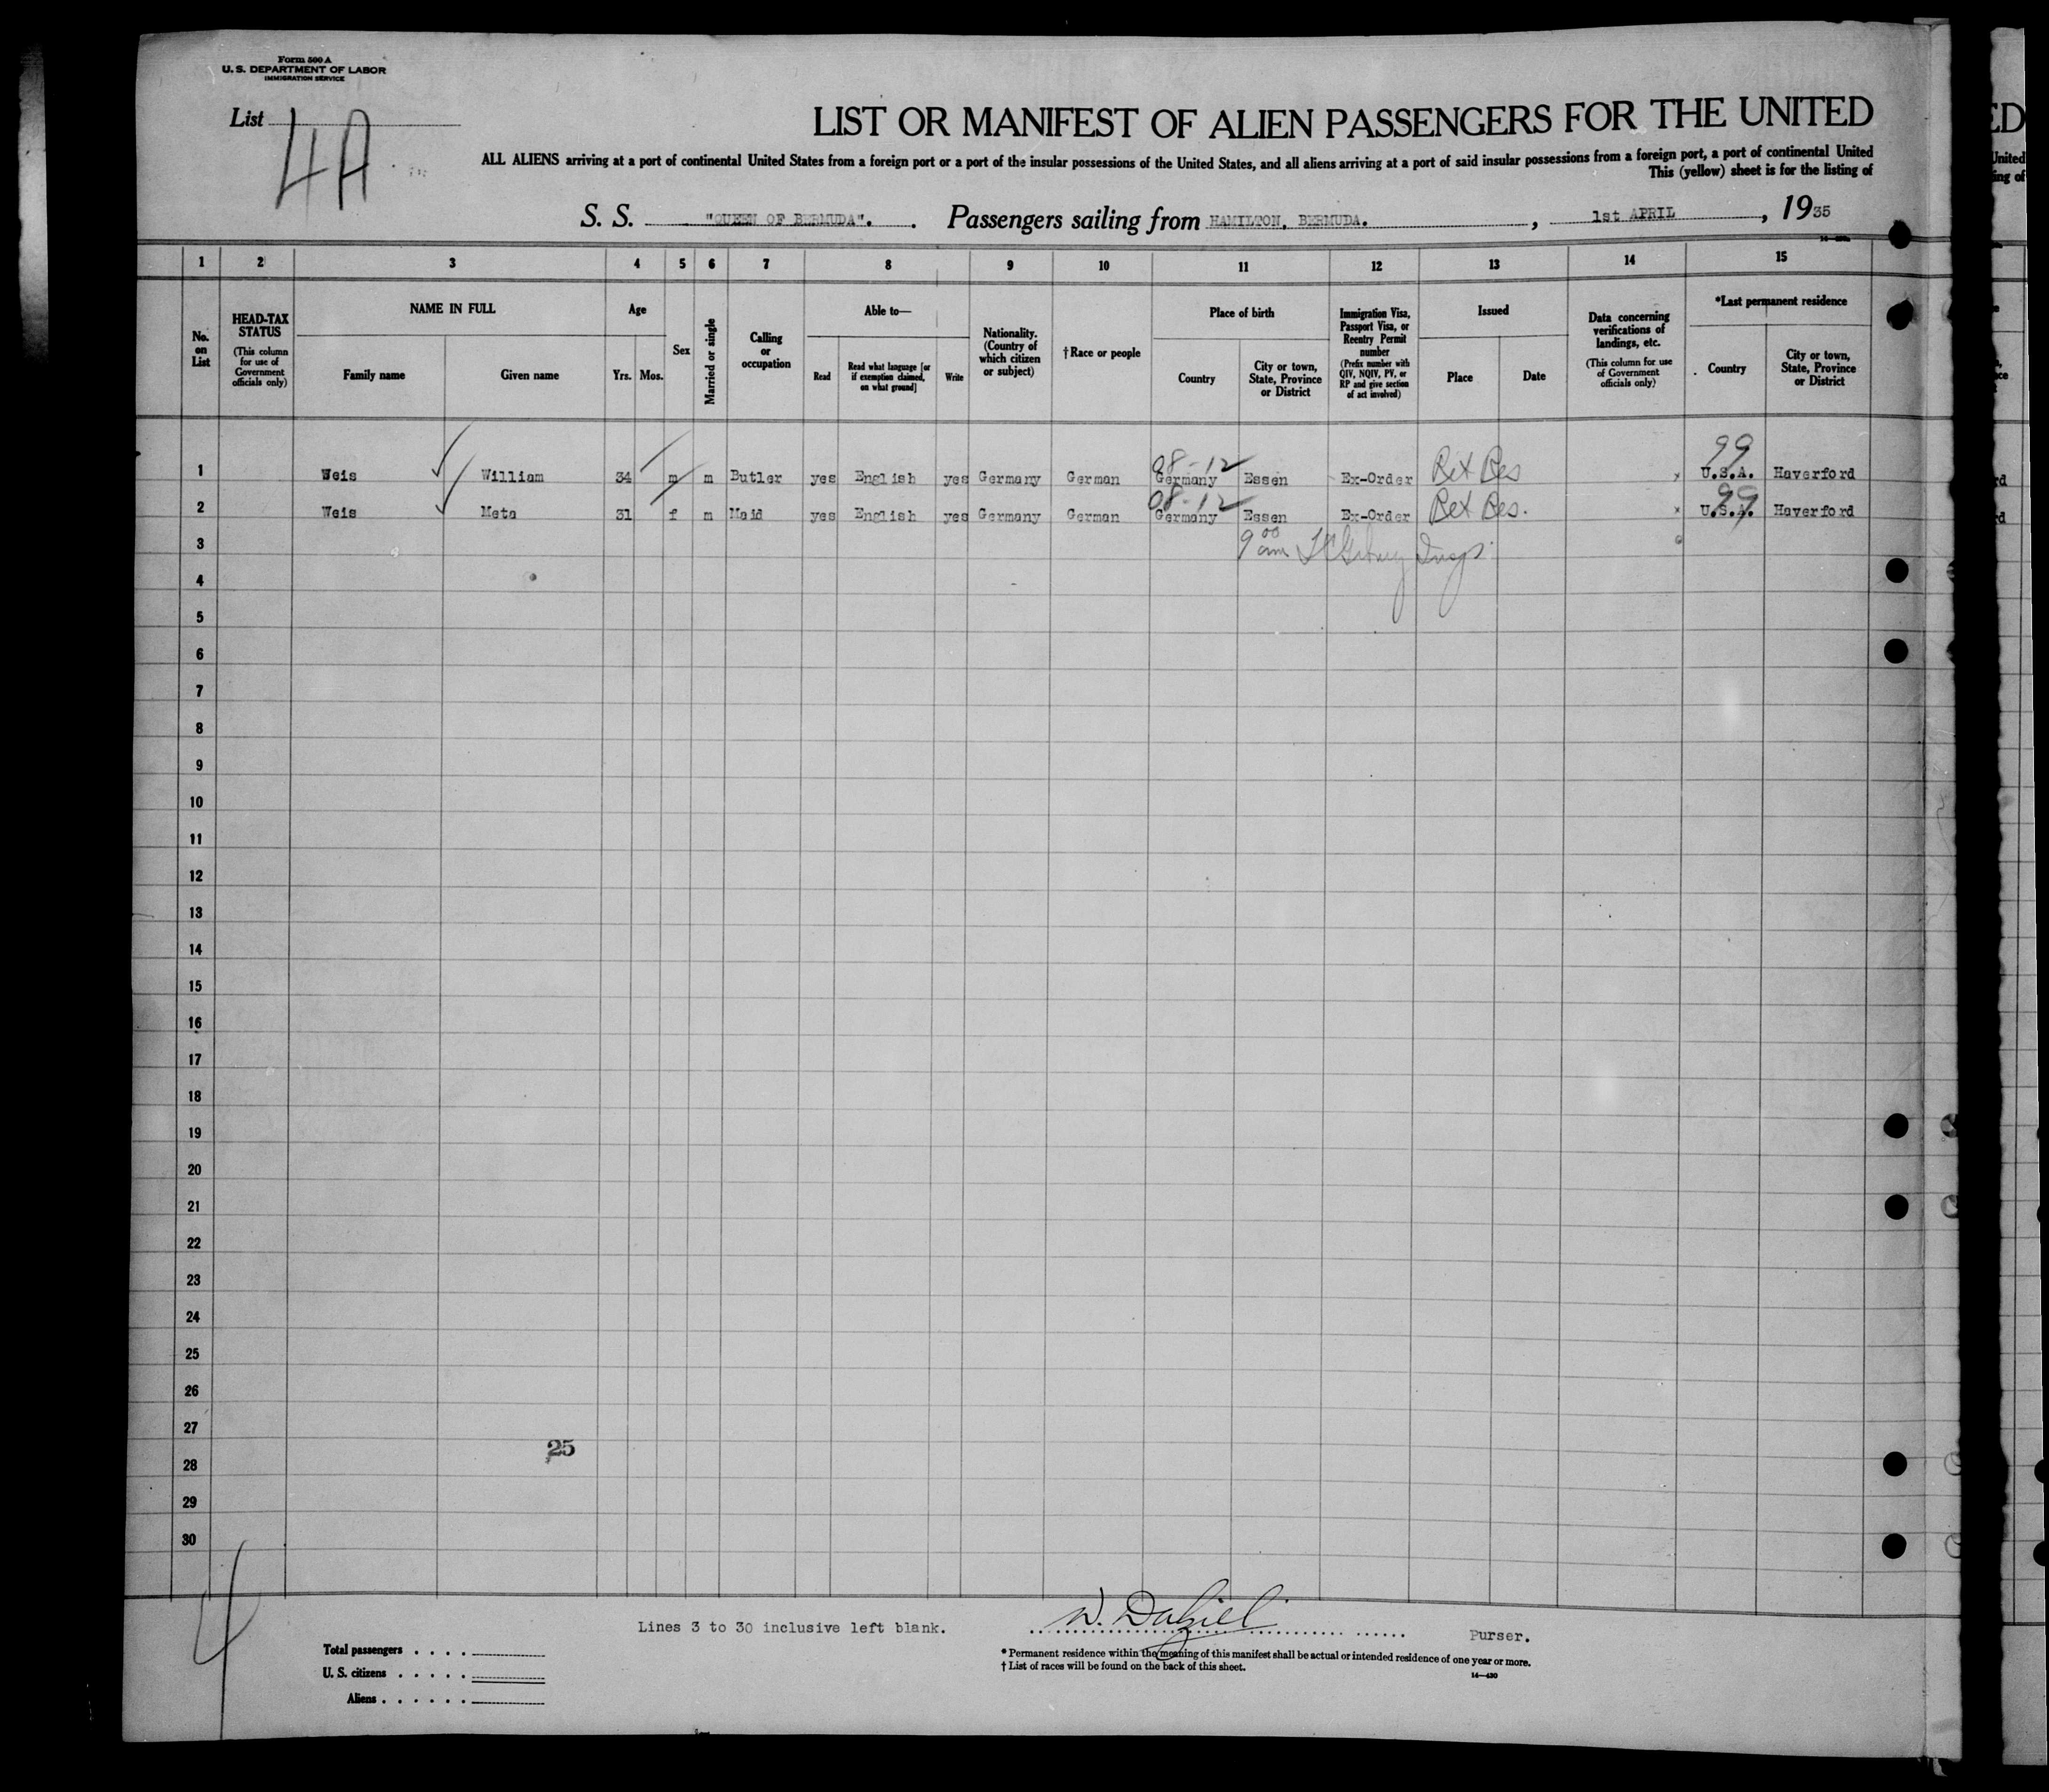 Form 500 A
U. S. DEPARTMENT OF LABOR
IMMIGRATION SERVICE
List 4A
LIST OR MANIFEST OF ALIEN PASSENGERS FOR THE UNITED
ALL ALIENS arriving at a port of continental United States from a foreign port or a port of the insular possessions of the United States, and all aliens arriving at a port of said insular possessions from a foreign port, a port of continental United
This (yellow) sheet is for the listing of
S. S. "QUEEN OF BERMUDA". Passengers sailing from HAMILTON, BERMUDA. , 1st APRIL , 1935
1 2 3 4 5 6 7 8 9 10 11 12 13 14 15
No. on List
HEAD-TAX STATUS (This column for use of Government officials only)
NAME IN FULL
Family name
Given name
Age
Yrs. Mos.
Sex
Married or single
Calling or occupation
Able to—
Read
Read what language [or if exemption claimed, on what ground]
Write
Nationality. (Country of which citizen or subject)
† Race or people
Place of birth
Country
City or town, State, Province or District
Immigration Visa, Passport Visa, or Reentry Permit number (Prefix number with QIV, NQIV, PV, or RP and give section of act involved)
Issued
Place
Date
Data concerning verifications of landings, etc. (This column for use of Government officials only)
*Last permanent residence
Country
City or town, State, Province or District
08-12 99
1 Weis William 34 m m Butler yes English yes Germany German Germany Essen Ex-Order Ret Res x U.S.A. Haverford
08-12 99
2 Weis Meta 31 f m Maid yes English yes Germany German Germany Essen Ex-Order Ret Res. x U.S.A. Haverford
3 9 00 am Insp.
4
5
6
7
8
9
10
11
12
13
14
15
16
17
18
19
20
21
22
23
24
25
26
27
25
28
29
30
4
Lines 3 to 30 inclusive left blank.
W. Dalziel Purser.
Total passengers . . . .
U. S. citizens . . . . .
Aliens . . . . . .
* Permanent residence within the meaning of this manifest shall be actual or intended residence of one year or more.
† List of races will be found on the back of this sheet.
14—430